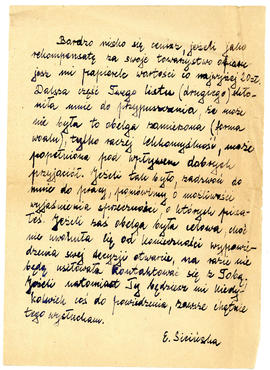 Bardzo nisko się cenisz, jeżeli jako
rekompensatę za swoje towarzystwo ofiaru-
jesz mi papierek wartości co najwyżej 20 zł.
Dalsza część Twego listu (drugiego) skło-
niła mnie do przypuszczenia, że może
nie była to obelga zamierzona (forma
woalu), tylko raczej lekkomyślność, może
popełniona pod wpływem dobrych
przyjaciół. Jeżeli tak było, zadzwoń do
mnie do pracy, pomówimy o możliwości
wyjaśnienia sprzeczności, o których pisa-
łeś. Jeżeli zaś obelga była celowa, choć
nie uwolniła Cię od konieczności wypowie-
dzenia swej decyzji otwarcie, na razie nie
będę usiłowała kontaktować się z Tobą.
Jeżeli natomiast Ty będziesz mi kiedy-
kolwiek coś do powiedzenia, zawsze chętnie
tego wysłucham.
E. Sicińska